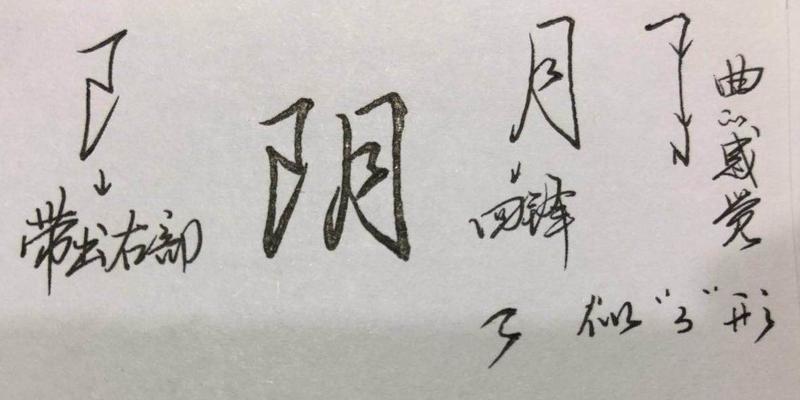 阝
带出右部
阴
月
回锋
曲的感觉
似"3"形